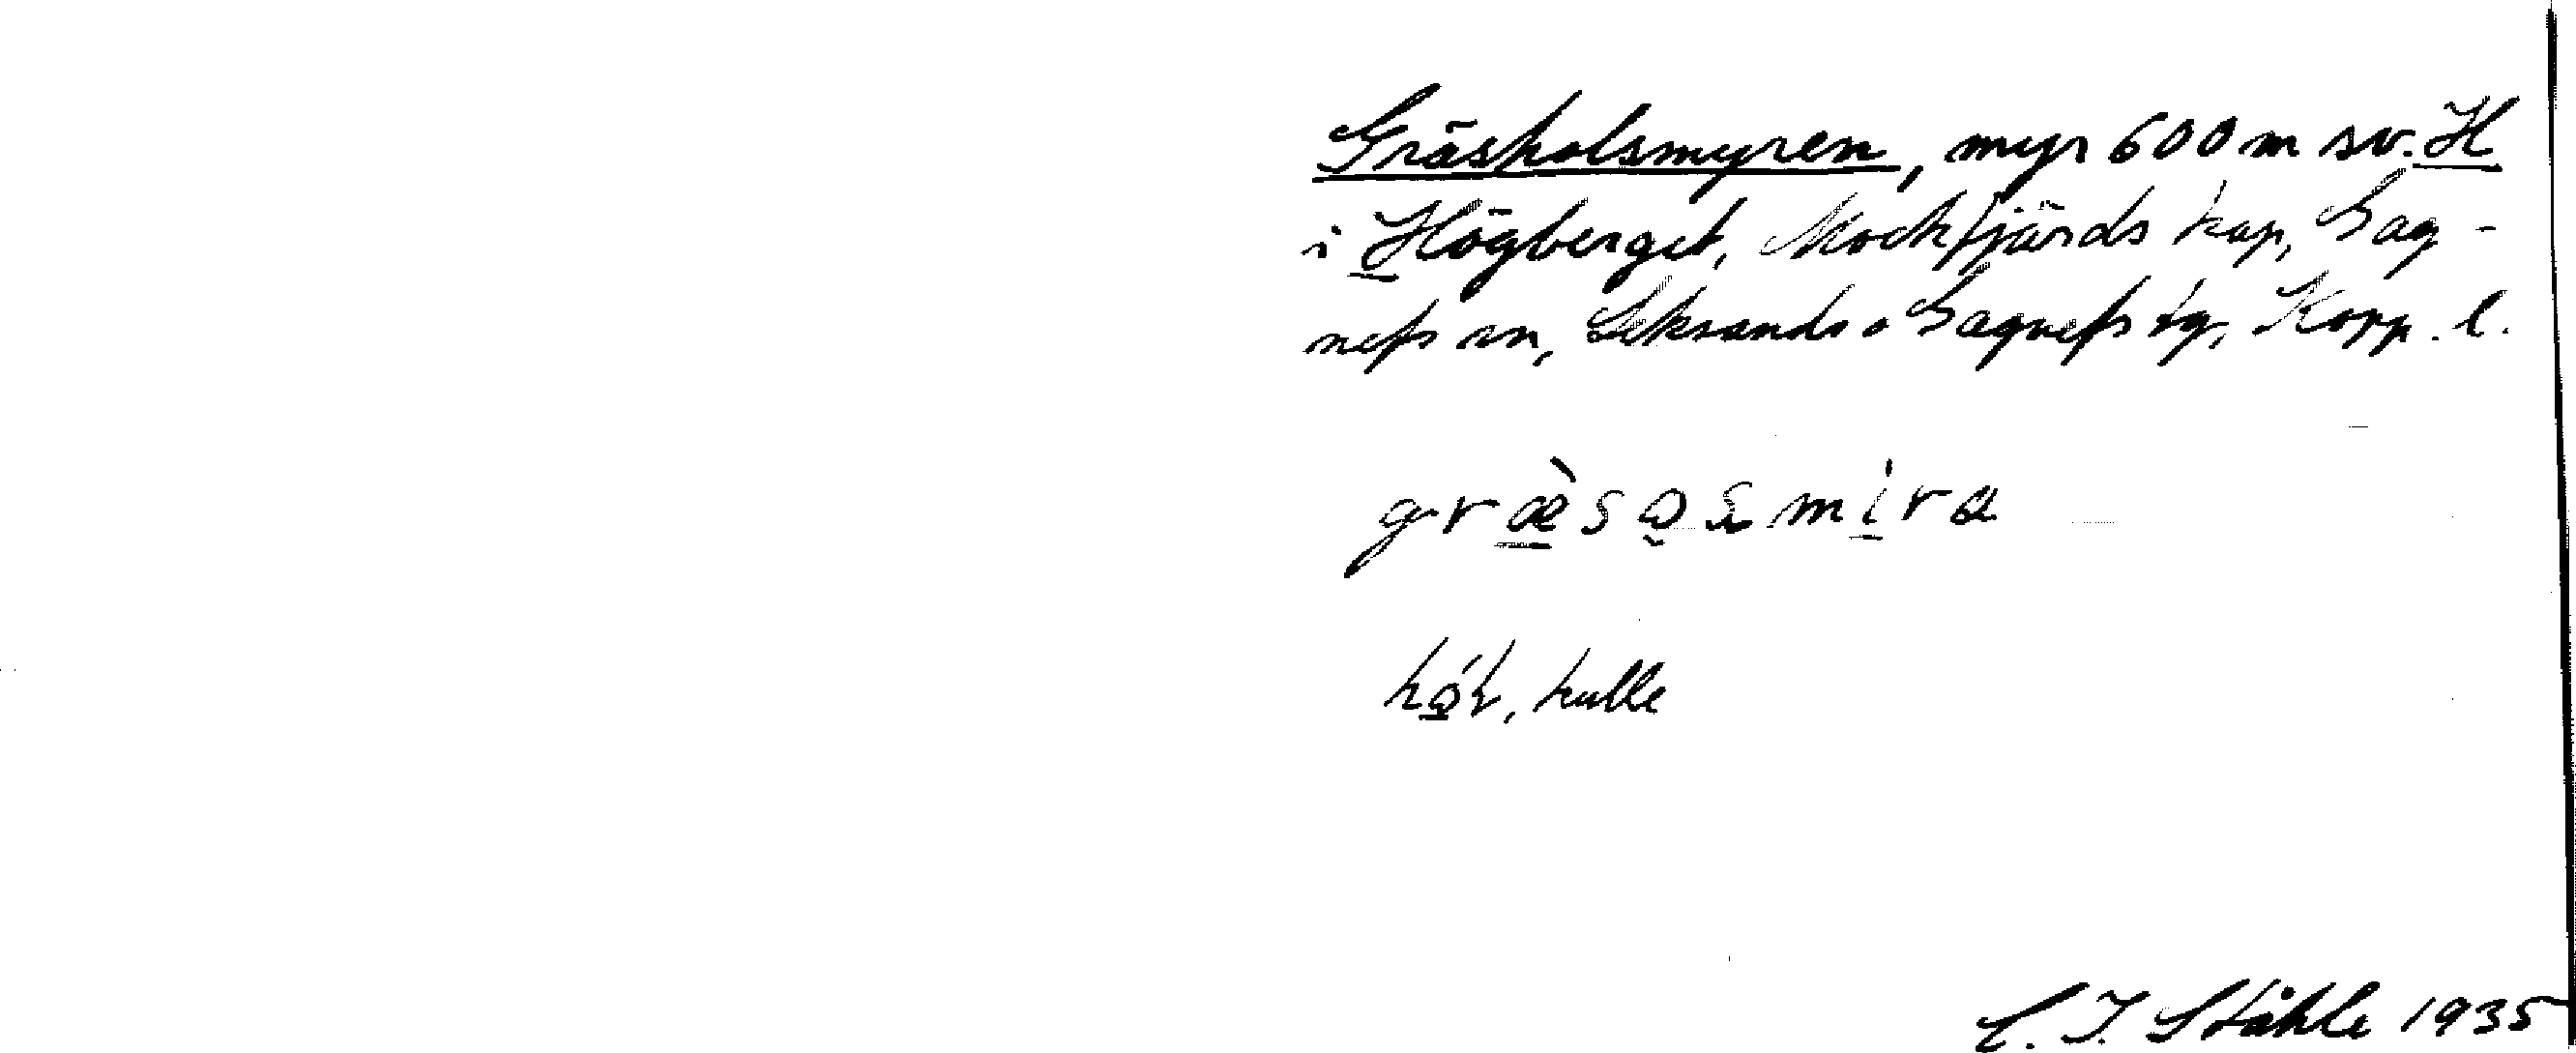 Gräsholsmyren, myr 600 m sv. H
i Högberget, Mockfjärds kap, Gag-
nefs sn, Leksands o Gagnefs tg, Kopp. l.
græ̀sǫsmira
kulle
C. I. Ståhle 1935